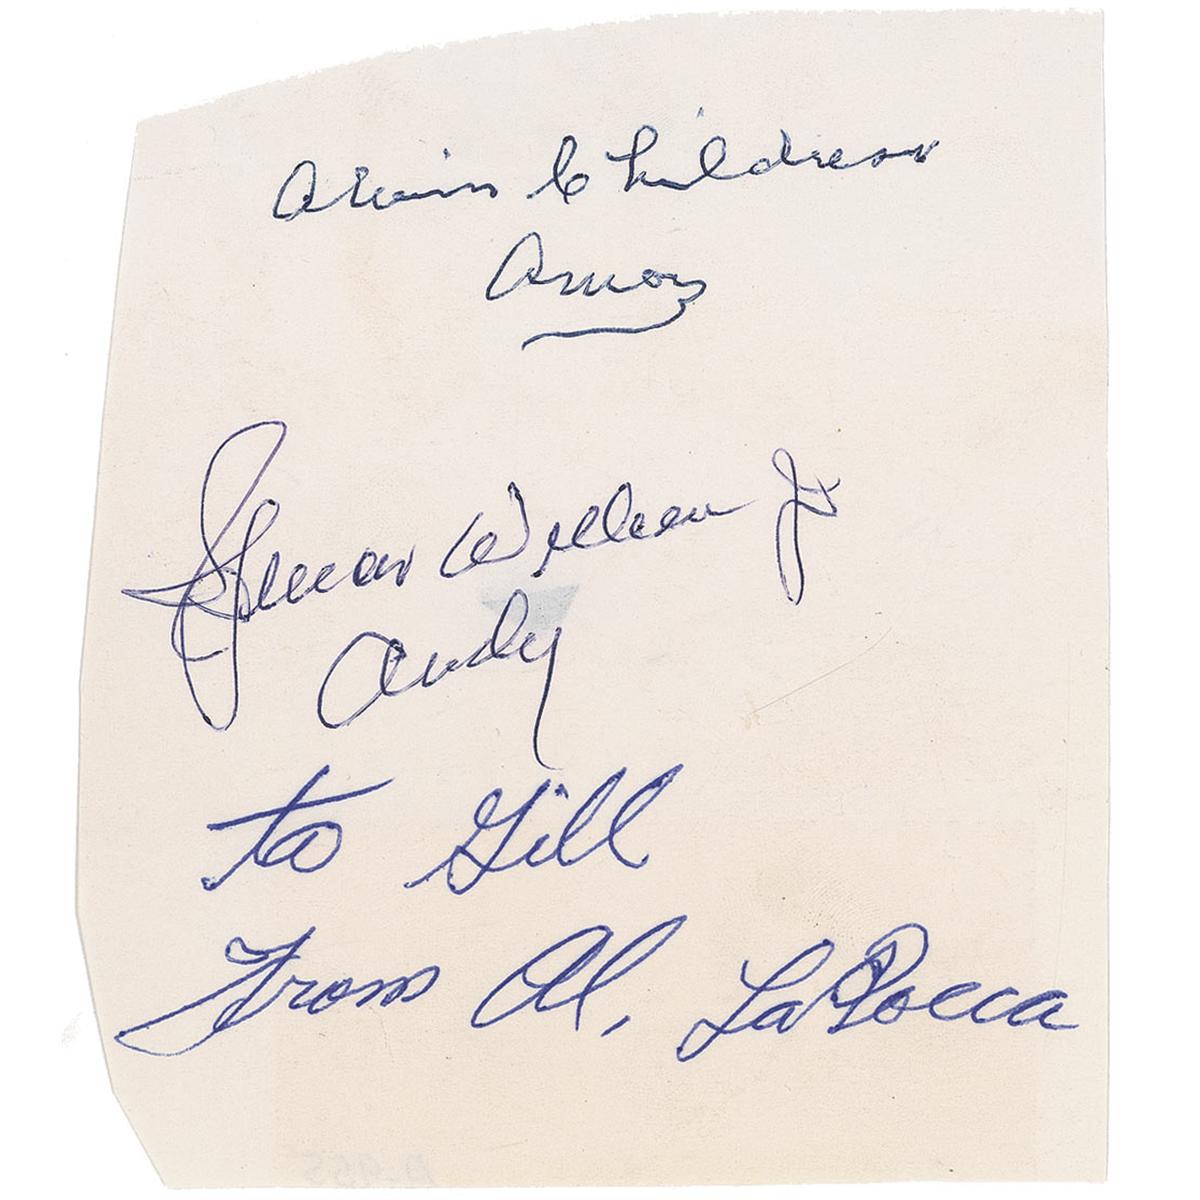 Alvin Childress
Amos
Spencer Williams Jr
Andy
to Gill
From Al, LaRocca